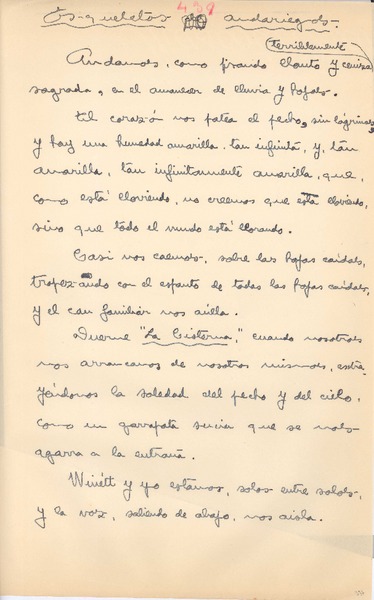 Esqueletos andariegos.
431
terriblemente
Andamos, como frando llanto y ceniza
sagrada, en el amanecer de lluvia y hojas.
El corazón nos patea el pecho, sin lágrimas,
y hay una humedad amarilla, tan infinita, y, tan
amarilla, tan infinitamente amarilla, que,
como está lloviendo, no creemos que está lloviendo,
sino que todo el mundo está llorando.
Casi nos caemos, sobre las hojas caídas,
tropezando con el espanto de todas las hojas caídas,
y el can familiar nos aúlla.
Duerme "La Cisterna", cuando nosotros
nos arrancamos de nosotros mismos, extra-
yéndonos la soledad del pecho y del cielo,
como un garrapata sucia que se nos
agarra a la entraña.
Winétt y yo estamos, solos entre solos,
y la voz, saliendo de abajo, nos aisla.